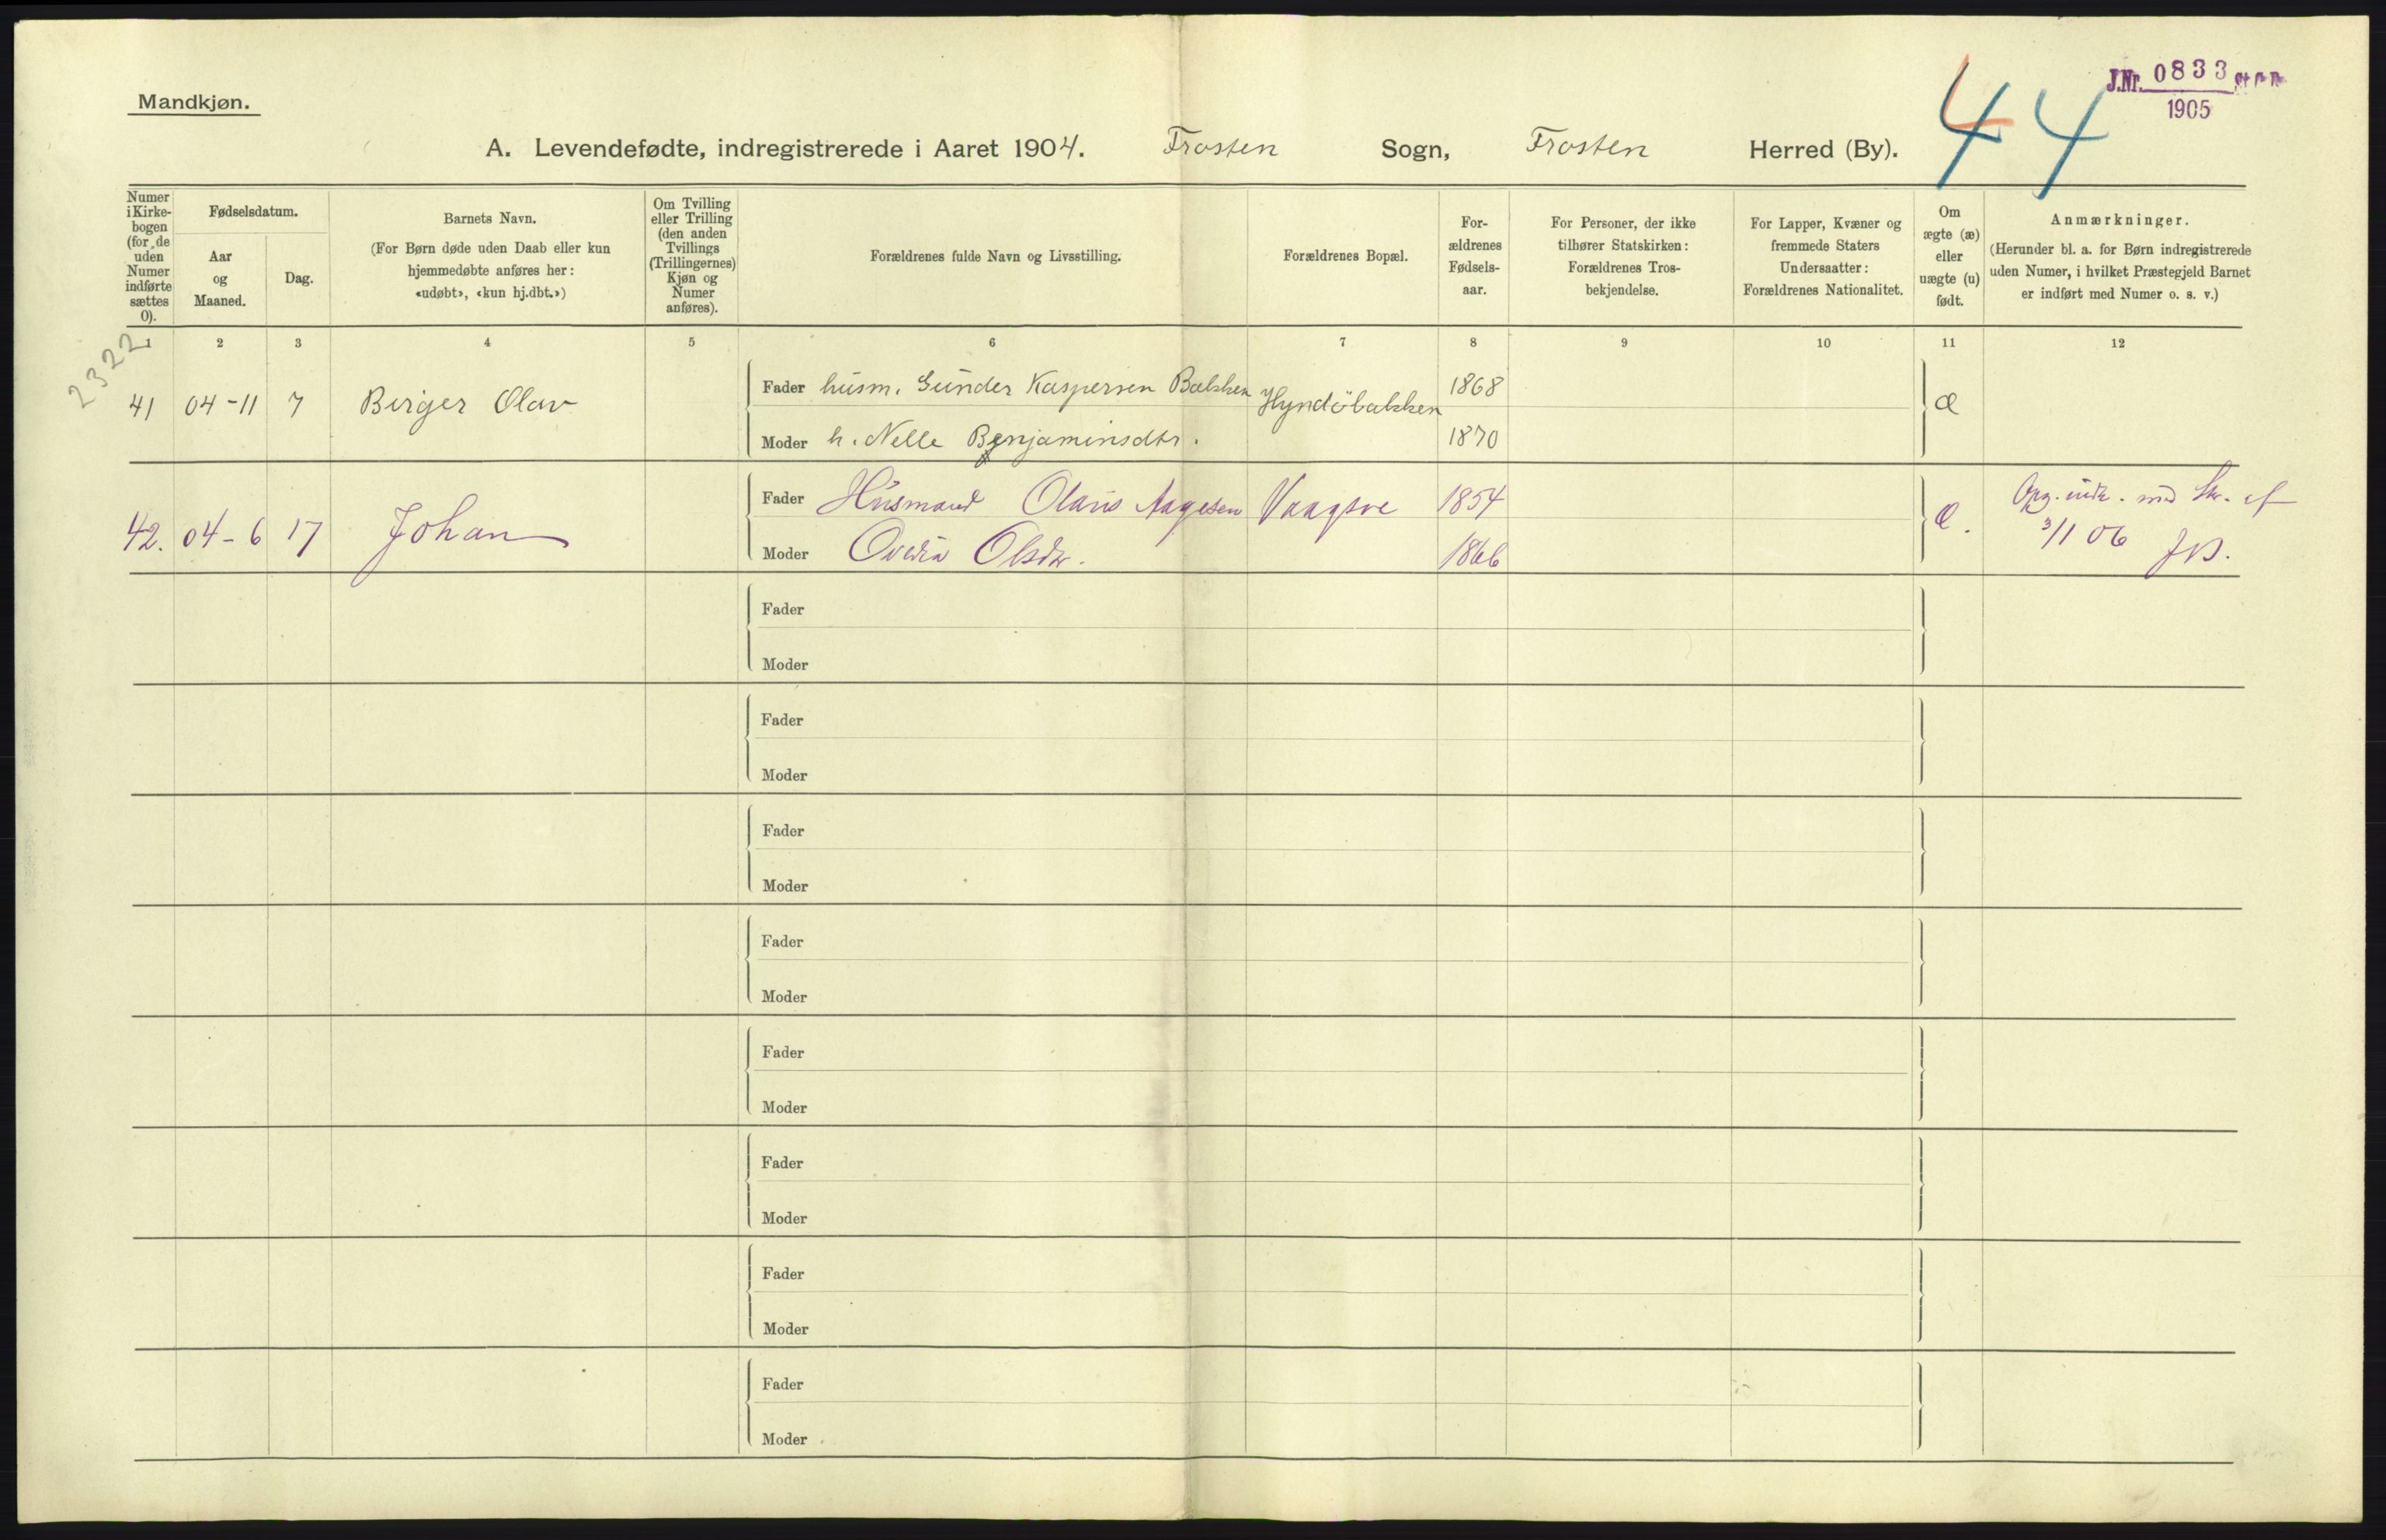 Mandkjøn.
J.Nr. 0833
1905
44
A. Levendefødte, indregistrerede i Aaret 1904. Frosten Sogn, Frosten Herred (By).
Numer i Kirke-bogen (for de uden Numer indførte sættes 0).
Fødselsdatum.
Aar og Maaned.
Dag.
Barnets Navn.
(For Børn døde uden Daab eller kun hjemmedøbte anføres her: «udøbt», «kun hj.dbt.»)
Om Tvilling eller Trilling (den anden Tvillings (Trillingernes) Kjøn og Numer anføres).
Forældrenes fulde Navn og Livsstilling.
Forældrenes Bopæl.
For-ældrenes Fødsels-aar.
For Personer, der ikke tilhører Statskirken: Forældrenes Tros-bekjendelse.
For Lapper, Kvæner og fremmede Staters Undersaatter: Forældrenes Nationalitet.
Om ægte (æ) eller uægte (u) født.
Anmærkninger.
(Herunder bl. a. for Børn indregistrerede uden Numer, i hvilket Præstegjeld Barnet er indført med Numer o. s. v.)
1 2 3 4 5 6 7 8 9 10 11 12
2322
41 04-11 7 Berger Olav Fader husm. Gunder Kaspersen Balkken Hyndöbakken 1868 æ
Moder h. Nelle Benjaminsdtr. 1870
42. 04-6 17 Johan Fader Husmand Olaus Aagesen Vaagsve 1854 Æ. Opg. indk. med Skr. af
Moder Ovedia Olsdtr. 1866 3/1 06 JB.
Fader
Moder
Fader
Moder
Fader
Moder
Fader
Moder
Fader
Moder
Fader
Moder
Fader
Moder
Fader
Moder